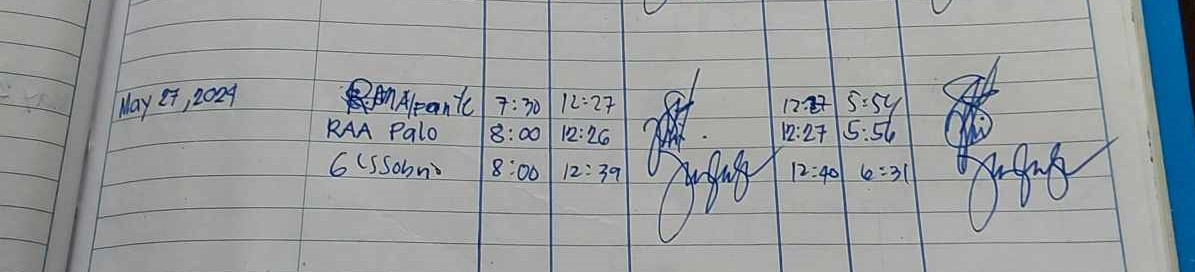 May 27, 2024 RMAlfante 7:30 12:27 12:27 5:54
RAA Palo 8:00 12:26 12:27 5:56
GCSSobrio 8:00 12:39 12:40 6:31